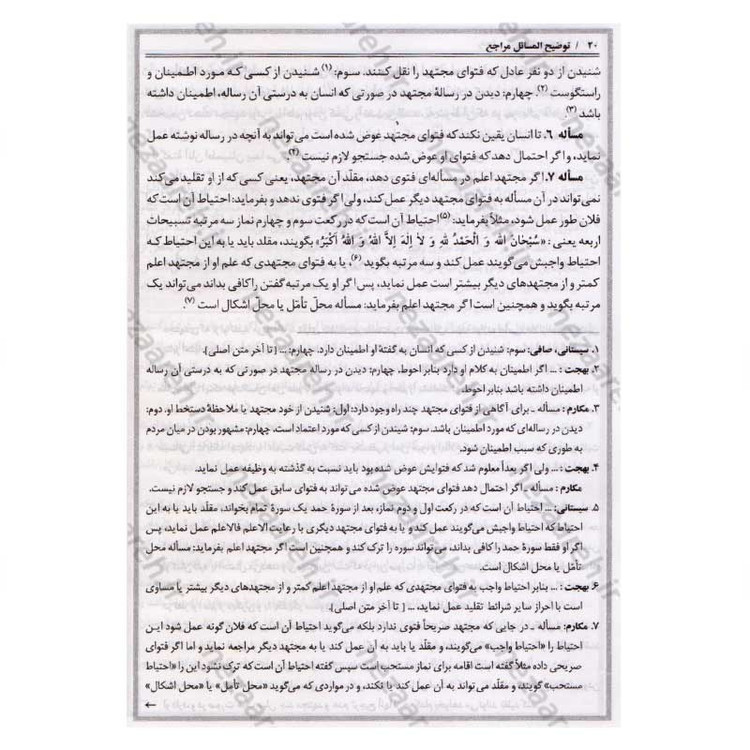 ۲۰ / توضیح المسائل مراجع
شنیدن از دو نفر عادل که فتوای مجتهد را نقل کنند. سوم: (۱) شنیدن از کسی که مورد اطمینان و
راستگوست (۲). چهارم: دیدن در رسالهٔ مجتهد در صورتی که انسان به درستی آن رساله، اطمینان داشته
باشد (۳).
مسأله ۶. تا انسان یقین نکند که فتوای مجتهد عوض شده است می‌تواند به آنچه در رساله نوشته عمل
نماید، و اگر احتمال دهد که فتوای او عوض شده جستجو لازم نیست (۴).
مسأله ۷. اگر مجتهد اعلم در مسأله‌ای فتوی دهد، مقلّد آن مجتهد، یعنی کسی که از او تقلید می‌کند
نمی‌تواند در آن مسأله به فتوای مجتهد دیگر عمل کند، ولی اگر فتوی ندهد و بفرماید: احتیاط آن است که
فلان طور عمل شود، مثلاً بفرماید: (۵) احتیاط آن است که در رکعت سوم و چهارم نماز سه مرتبه تسبیحات
اربعه یعنی: «سُبْحَانَ اللهِ وَ الْحَمْدُ لِلّهِ وَ لاَ إِلهَ إِلاَّ اللهُ وَ اللهُ أَکْبَرُ» بگویند، مقلد باید یا به این احتیاط که
احتیاط واجبش می‌گویند عمل کند و سه مرتبه بگوید (۶)، یا به فتوای مجتهدی که علم او از مجتهد اعلم
کمتر و از مجتهدهای دیگر بیشتر است عمل نماید، پس اگر او یک مرتبه گفتن را کافی بداند می‌تواند یک
مرتبه بگوید و همچنین است اگر مجتهد اعلم بفرماید: مسأله محلّ تأمّل یا محل اشکال است (۷).
۱. سیستانی، صافی: سوم: شنیدن از کسی که انسان به گفتهٔ او اطمینان دارد. چهارم: ... [تا آخر متن اصلی].
۲. بهجت: ... اگر اطمینان به کلام او دارد بنابر احوط. چهارم: دیدن در رساله مجتهد در صورتی که به درستی آن رساله
اطمینان داشته باشد بنابر احوط.
۳. مکارم: مسأله ـ برای آگاهی از فتوای مجتهد چند راه وجود دارد: اول: شنیدن از خود مجتهد یا ملاحظهٔ دستخط او. دوم:
دیدن در رساله‌ای که مورد اطمینان باشد. سوم: شنیدن از کسی که مورد اعتماد است. چهارم: مشهور بودن در میان مردم
به طوری که سبب اطمینان شود.
۴. بهجت: ... ولی اگر بعداً معلوم شد که فتوایش عوض شده بود باید نسبت به گذشته به وظیفه عمل نماید.
مکارم: مسأله ـ اگر احتمال دهد فتوای مجتهد عوض شده می‌تواند به فتوای سابق عمل کند و جستجو لازم نیست.
۵. سیستانی: ... احتیاط آن است که در رکعت اول و دوم نماز، بعد از سورهٔ حمد یک سورهٔ تمام بخواند، مقلّد باید یا به این
احتیاط که احتیاط واجبش می‌گویند عمل کند و یا به فتوای مجتهد دیگری با رعایت الاعلم فالاعلم عمل نماید، پس
اگر او فقط سورهٔ حمد را کافی بداند، می‌تواند سوره را ترک کند و همچنین است اگر مجتهد اعلم بفرماید: مسأله محل
تأمّل یا محل اشکال است.
۶. بهجت: ... بنابر احتیاط واجب به فتوای مجتهدی که علم او از مجتهد اعلم کمتر و از مجتهدهای دیگر بیشتر یا مساوی
است با احراز سایر شرائط تقلید عمل نماید، ... [تا آخر متن اصلی].
۷. مکارم: مسأله ـ در جایی که مجتهد صریحاً فتوی ندارد بلکه می‌گوید احتیاط آن است که فلان گونه عمل شود این
احتیاط را «احتیاط واجب» می‌گویند، و مقلّد یا باید به آن عمل کند یا به مجتهد دیگر مراجعه نماید و اما اگر فتوای
صریحی داده مثلاً گفته است اقامه برای نماز مستحب است سپس گفته احتیاط آن است که ترک نشود این را «احتیاط
مستحب» گویند، و مقلّد می‌تواند به آن عمل کند یا نکند، و در مواردی که می‌گوید «محل تأمل» یا «محل اشکال»
←
nezaareh.ir